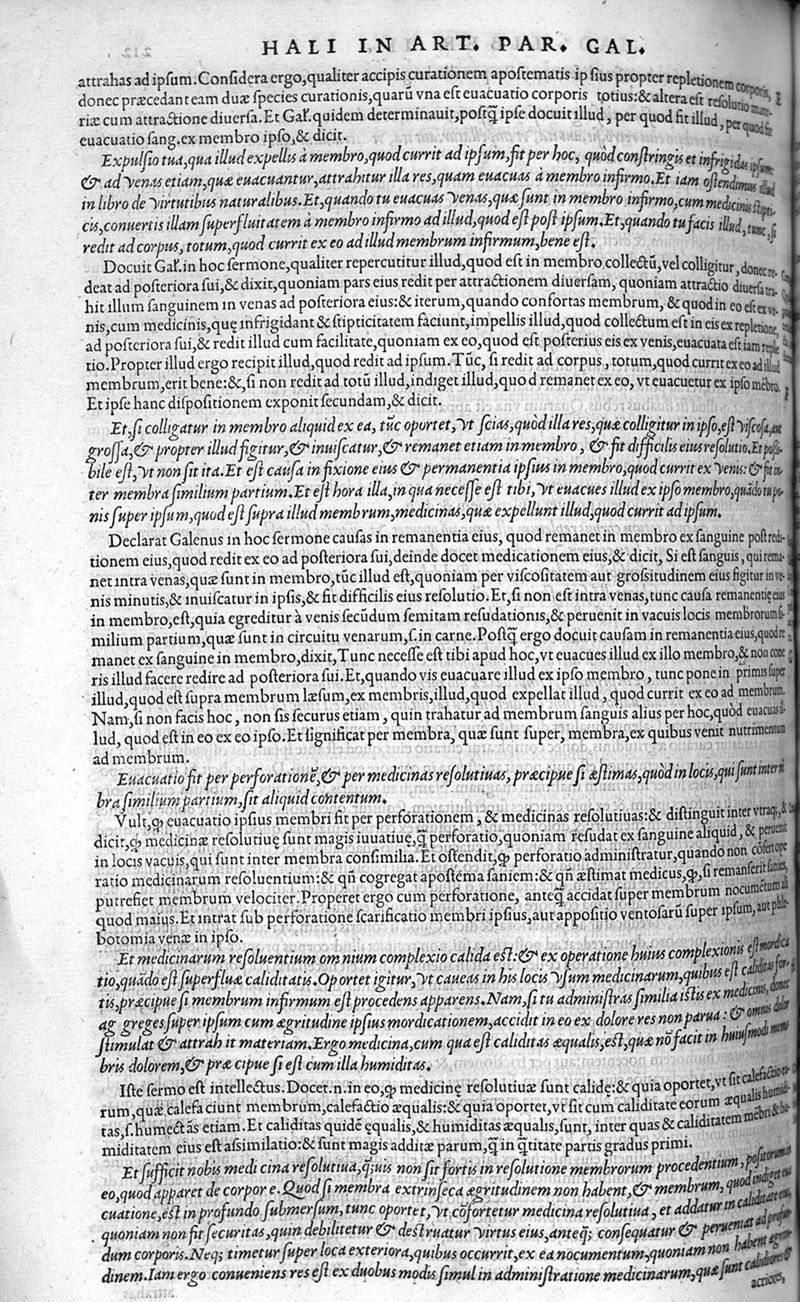 HALI IN ART. PAR. GAL.
attrahas ad ipsum. Considera ergo, qualiter accipis curationem apostematis ipsius propter repletionem corporis,
donec præcedant eam duæ species curationis, quarũ vna est euacuatio corporis totius: & altera est resolutio mate-
riæ cum attractione diuersa. Et Gal. quidem determinauit, postq̃ ipse docuit illud, per quod fit illud, per quod fit
euacuatio sang. ex membro ipso, & dicit.
Expulsio tua, qua illud expellis à membro, quod currit ad ipsum, fit per hoc, quòd constringis et infrigidas ipsum:
& ad venas etiam, quæ euacuantur, attrahitur illa res, quam euacuas à membro infirmo. Et iam ostendimus illud
in libro de virtutibus naturalibus. Et, quando tu euacuas venas, quæ sunt in membro infirmo, cum medicinis stipti-
cis, conuertis illam superfluitatem à membro infirmo ad illud, quod est post ipsum. Et, quando tu facis illud, tunc, si
redit ad corpus, totum, quod currit ex eo ad illud membrum infirmum, bene est.
Docuit Gal. in hoc sermone, qualiter repercutitur illud, quod est in membro collectũ, vel colligitur, donec re-
deat ad posteriora sui, & dixit, quoniam pars eius redit per attractionem diuersam, quoniam attractio diuersa tra-
hit illum sanguinem in venas ad posteriora eius: & iterum, quando confortas membrum, & quod in eo est ex ve-
nis, cum medicinis, quę infrigidant & stipticitatem faciunt, impellis illud, quod collectum est in eis ex repletione,
ad posteriora sui, & redit illud cum facilitate, quoniam ex eo, quod est posterius eis ex venis, euacuata est iam reple
tio. Propter illud ergo recipit illud, quod redit ad ipsum. Tũc, si redit ad corpus, totum, quod currit ex eo ad illud
membrum, erit bene: &, si non redit ad totũ illud, indiget illud, quod remanet ex eo, vt euacuetur ex ipso mẽbro.
Et ipse hanc dispositionem exponit secundam, & dicit.
Et, si colligatur in membro aliquid ex ea, tũc oportet, vt scias, quòd illa res, quæ colligitur in ipso, est viscosa, aut
grossa, & propter illud figitur, & inuiscatur, & remanet etiam in membro, & fit difficilis eius resolutio. Et possi-
bile est, vt non sit ita. Et est causa in fixione eius & permanentia ipsius in membro, quod currit ex venis: & fit in-
ter membra similium partium. Et est hora illa, in qua necesse est tibi, vt euacues illud ex ipso membro, quãdo tu po-
nis super ipsum, quod est supra illud membrum, medicinas, quæ expellunt illud, quod currit ad ipsum.
Declarat Galenus in hoc sermone causas in remanentia eius, quod remanet in membro ex sanguine post redi-
tionem eius, quod redit ex eo ad posteriora sui, deinde docet medicationem eius, & dicit, Si est sanguis, qui rema-
net intra venas, quæ sunt in membro, tũc illud est, quoniam per viscositatem aut grossitudinem eius figitur in ve-
nis minutis, & inuiscatur in ipsis, & fit difficilis eius resolutio. Et, si non est intra venas, tunc causa remanentię eius
in membro, est, quia egreditur à venis secũdum semitam resudationis, & peruenit in vacuis locis membrorum si-
milium partium, quæ sunt in circuitu venarum, s. in carne. Postq̃ ergo docuit causam in remanentia eius, quod re
manet ex sanguine in membro, dixit, Tunc necesse est tibi apud hoc, vt euacues illud ex illo membro, & non cone
ris illud facere redire ad posteriora sui. Et, quando vis euacuare illud ex ipso membro, tunc pone in primis super
illud, quod est supra membrum læsum, ex membris, illud, quod expellat illud, quod currit ex eo ad membrum.
Nam, si non facis hoc, non sis securus etiam, quin trahatur ad membrum sanguis alius per hoc, quòd euacuas il-
lud, quod est in eo ex eo ipso. Et significat per membra, quæ sunt super, membra, ex quibus venit nutrimentum
ad membrum.
Euacuatio fit per perforationẽ, & per medicinas resolutiuas, præcipue si æstimas, quòd in locis, qui sunt inter mẽ
bra similium partium, sit aliquid contentum.
Vult, ꝙ euacuatio ipsius membri fit per perforationem, & medicinas resolutiuas: & distinguit inter vtraq;, &
dicit, ꝙ medicinæ resolutiuę sunt magis iuuatiuę, q̃ perforatio, quoniam resudat ex sanguine aliquid, & peruenit
in locis vacuis, qui sunt inter membra consimilia. Et ostendit, ꝙ perforatio administratur, quando non cõfert ope
ratio medicinarum resoluentium: & qñ cogregat apostema saniem: & qñ æstimat medicus, ꝙ, si remanserit sanies,
putrefiet membrum velociter. Properet ergo cum perforatione, anteq̃ accidat super membrum nocumentum ali
quod maius. Et intrat sub perforatione scarificatio membri ipsius, aut appositio ventosarũ super ipsum, aut phle-
botomia venæ in ipso.
Et medicinarum resoluentium omnium complexio calida est: & ex operatione huius complexionis est mordica
tio, quãdo est superfluæ caliditatis. Oportet igitur, vt caueas in his locis vsum medicinarum, quibus est caliditas for-
tis, præcipue si membrum infirmum est procedens apparens. Nam, si tu administras similia istis ex medicinis, donec
aggreges super ipsum cum ægritudine ipsius mordicationem, accidit in eo ex dolore res non parua: & omnis dolor
stimulat & attrahit materiam. Ergo medicina, cum qua est caliditas æqualis, est, quæ nõ facit in huiusmodi mem
bris dolorem, & præcipue si est cum illa humiditas.
Iste sermo est intellectus. Docet .n. in eo, ꝙ medicinę resolutiuæ sunt calidę: & quia oportet, vt sit calefactio eo-
rum, quæ calefaciunt membrum, calefactio æqualis: & quia oportet, vt sit cum caliditate eorum æqualis humidi-
tas, s. humectãs etiam. Et caliditas quidẽ ęqualis, & humiditas æqualis, sunt, inter quas & caliditatem mẽbri & hu-
miditatem eius est assimilatio: & sunt magis additæ parum, q̃ in q̃titate partis gradus primi.
Et sufficit nobis medicina resolutiua, q̃uis non sit fortis in resolutione membrorum procedentium, positorum in
eo, quod apparet de corpore. Quod si membra extrinseca ægritudinem non habent, & membrum, quod indiget eua
cuatione, est in profundo submersum, tunc oportet, vt cõfortetur medicina resolutiua, et addatur in caliditate eius,
quoniam non fit securitas, quin debilitetur & destruatur virtus eius, anteq̃ consequatur & perueniat ad profun-
dum corporis. Neq; timetur super loca exteriora, quibus occurrit, ex ea nocumentum, quoniam non habent ægritu-
dinem. Iam ergo conueniens res est ex duobus modis simul in administratione medicinarum, quæ sunt calidiores &
acriores,
attrahas